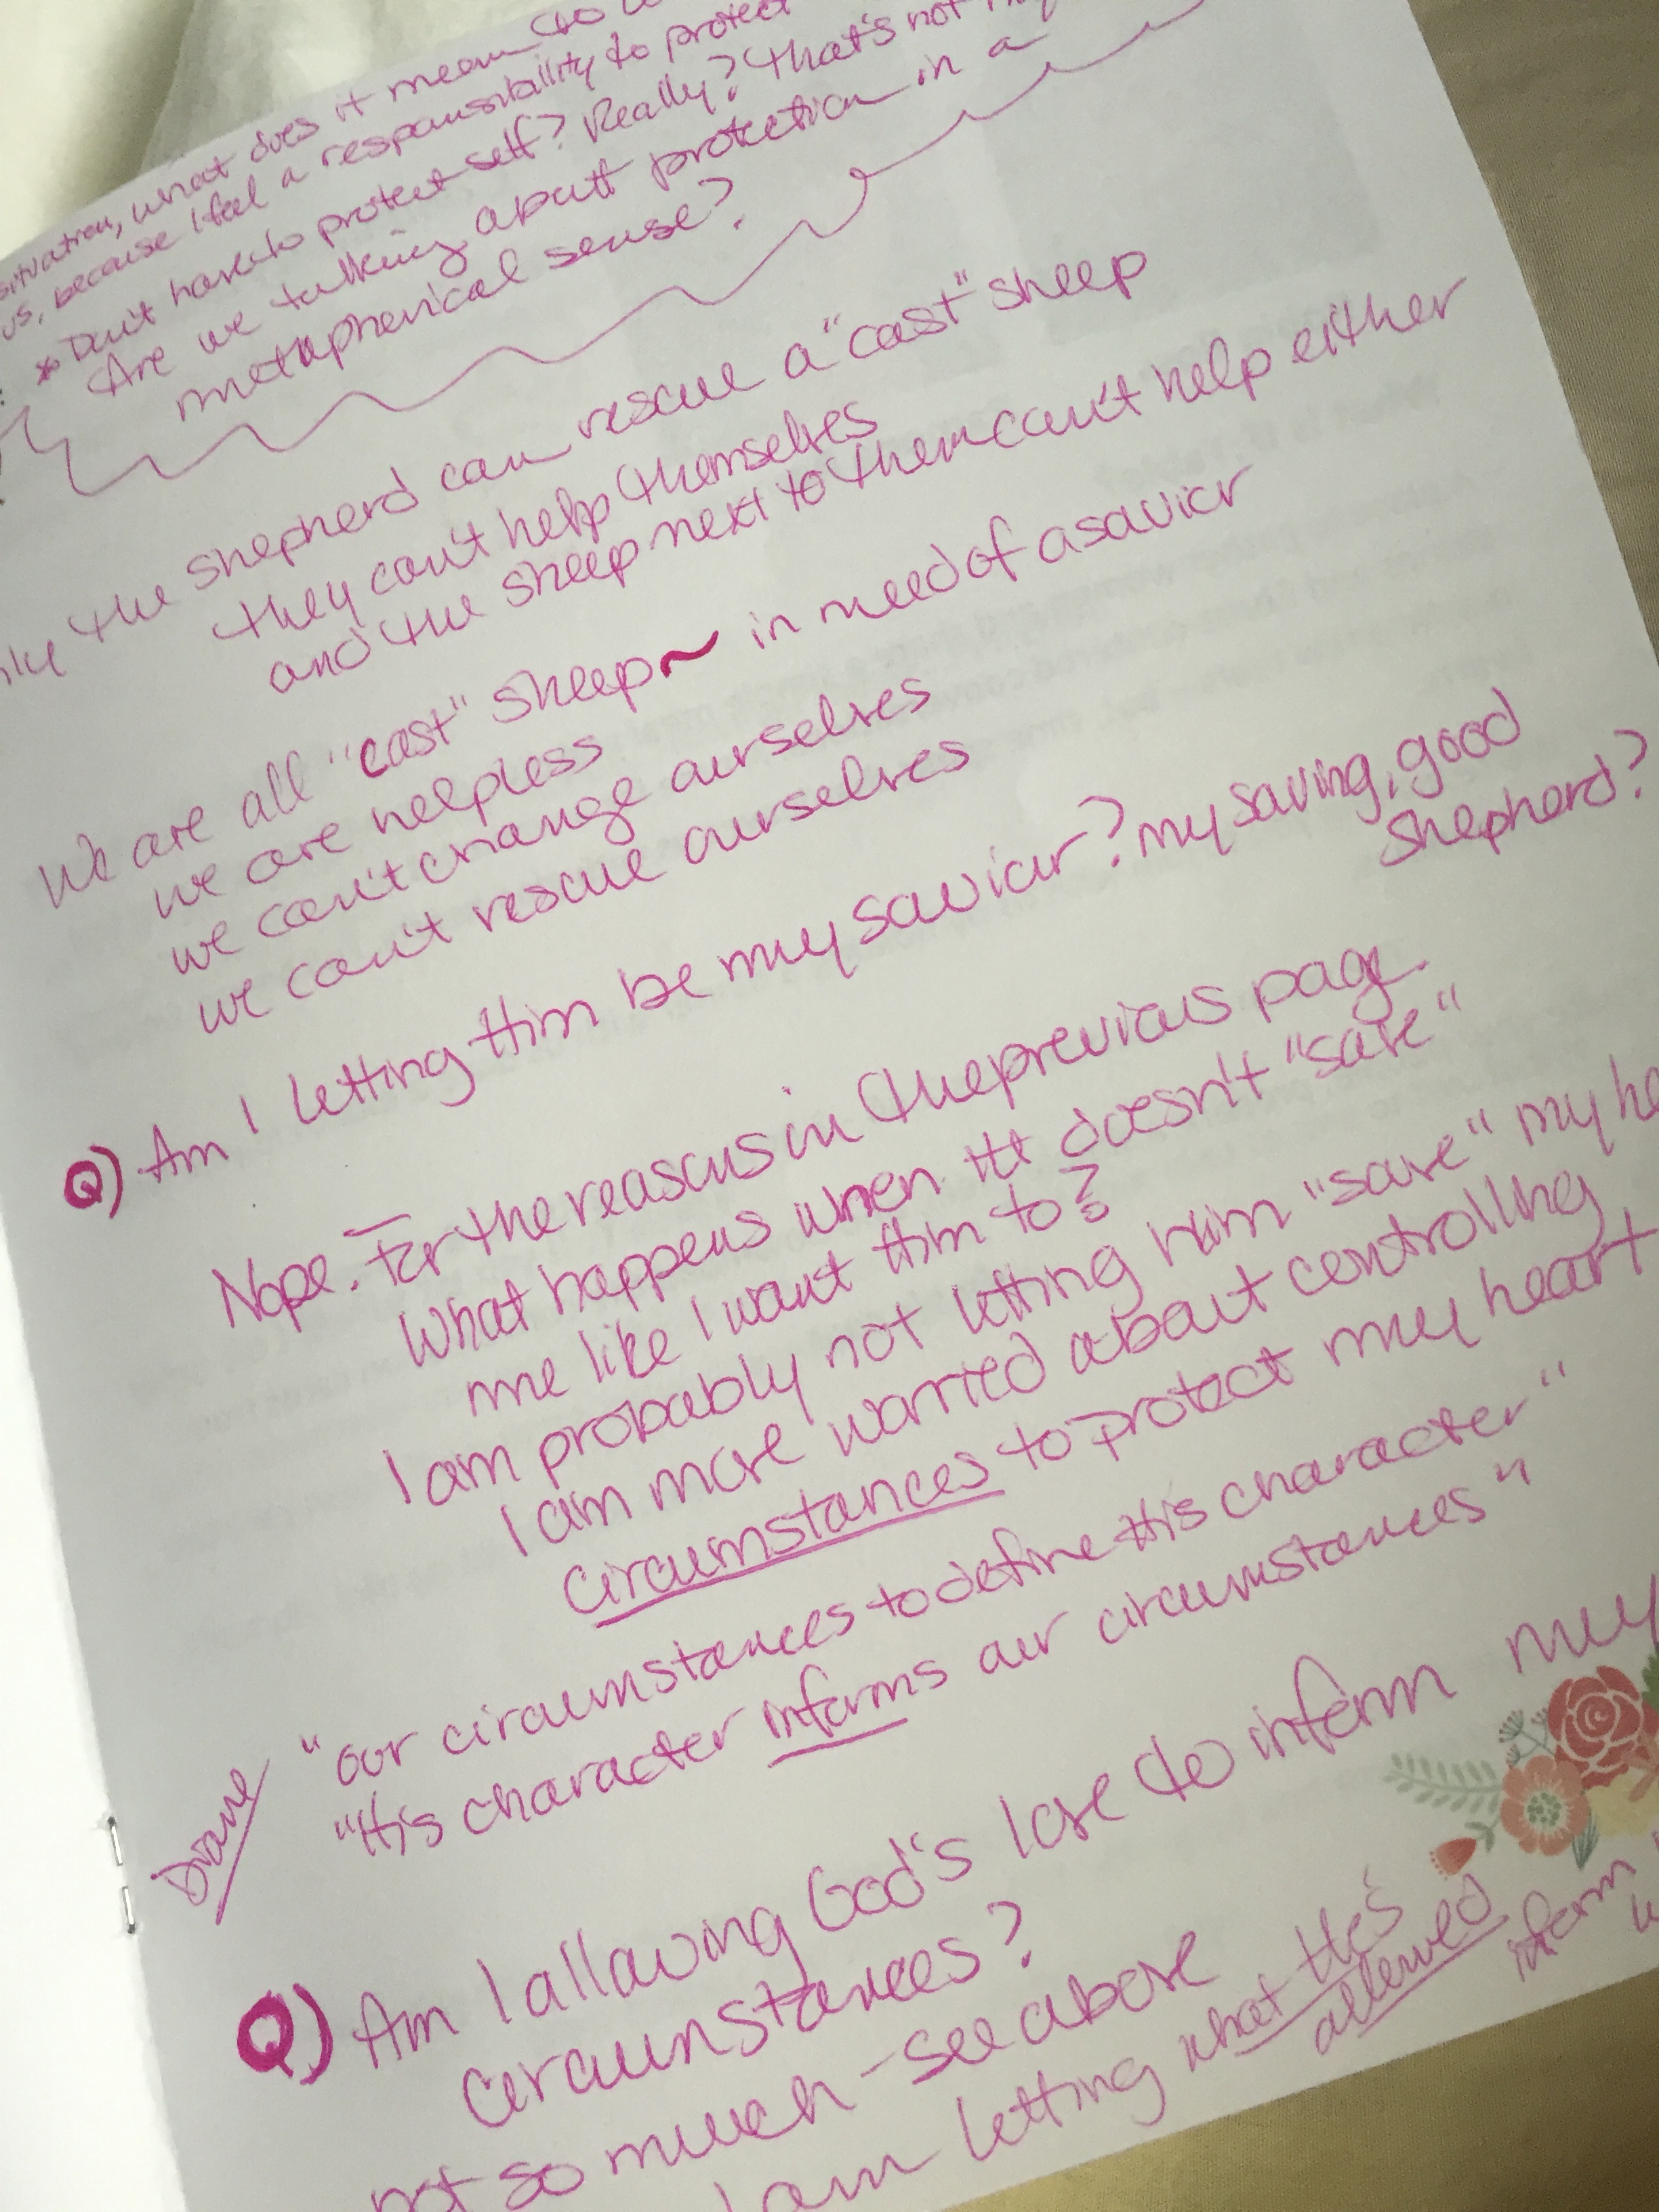 situation, what does it mean to
us, because I feel a responsibility to protect
* Don't have to protect self? Really? That's not my
Are we talking about protection in a
metaphorical sense?
the shepherd can rescue a "cast" sheep
they can't help themselves
and the sheep next to them can't help either
We are all "cast" sheep~ in need of a savior
we are helpless
we can't change ourselves
we can't rescue ourselves
Q) Am I letting Him be my savior? My saving, good
shepherd?
Nope. For the reasons in the previous page.
What happens when He doesn't "save"
me like I want Him to?
I am probably not letting him "save" my
I am more worried about controlling
circumstances to protect my heart
Drane
"our circumstances to define His character"
"His character informs our circumstances"
Q) Am I allowing God's love to inform my
circumstances?
not so much - see above
I am letting what He's
allowed
inform